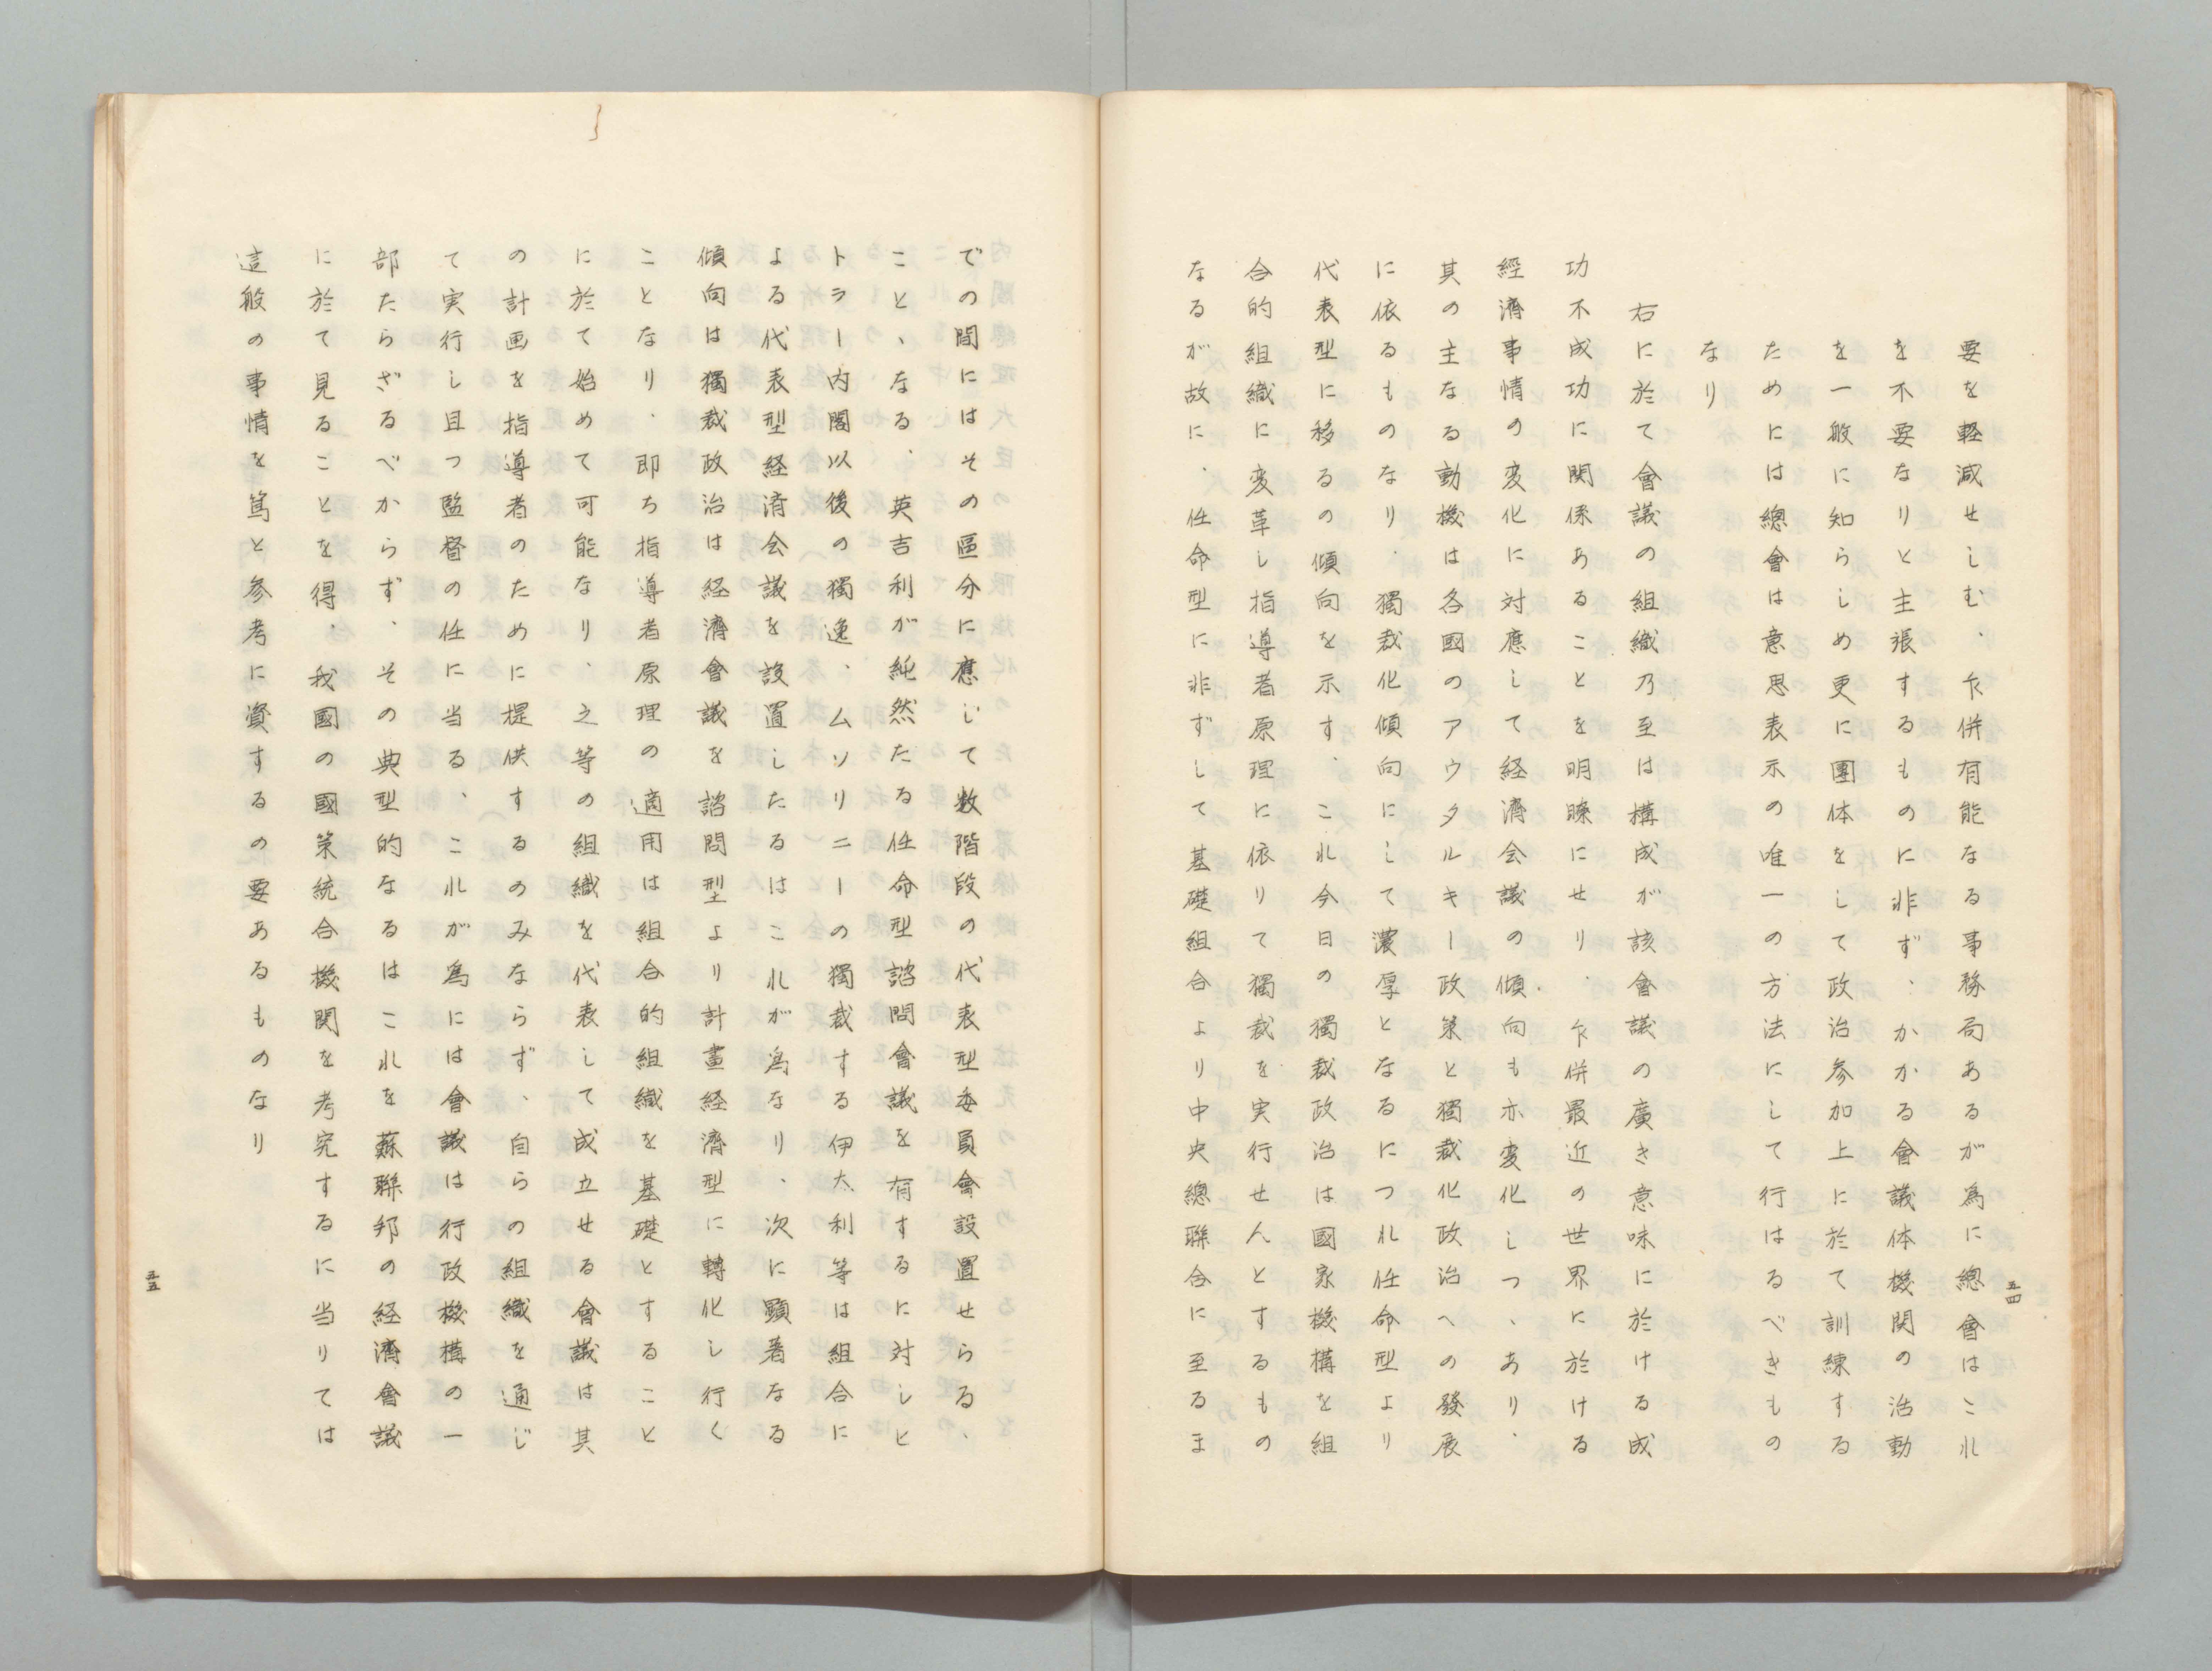 要を軽減せしむ、乍併有能なる事務局あるが為に總會はこれ
を不要なりと主張するものに非ず、かかる會議体機関の活動
を一般に知らしめ更に團体をして政治参加上に於て訓練する
ためには總會は意思表示の唯一の方法にして行はるべきもの
なり
右に於て會議の組織乃至は構成が該會議の廣き意味に於ける成
功不成功に関係あることを明瞭にせり、乍併最近の世界に於ける
經濟事情の変化に対應して経濟会議の傾向も亦変化しつゝあり、
其の主なる動機は各國のアウタルキー政策と獨裁化政治への發展
に依るものなり、獨裁化傾向にして濃厚となるにつれ任命型より
代表型に移るの傾向を示す、これ今日の獨裁政治は國家機構を組
合的組織に変革し指導者原理に依りて獨裁を実行せんとするもの
なるが故に、任命型に非ずして基礎組合より中央總聯合に至るま
五四
での間にはその區分に應じて数階段の代表型委員會設置せらる、
ことゝなる、英吉利が純然たる任命型諮問會議を有するに対しヒ
トラー内閣以後の獨逸、ムソリニーの獨裁する伊太利等は組合に
よる代表型経済会議を設置したるはこれが為なり、次に顕著なる
傾向は獨裁政治は経濟會議を諮問型より計畫経濟型に轉化し行く
ことなり、即ち指導者原理の適用は組合的組織を基礎とすること
に於て始めて可能なり、之等の組織を代表して成立せる會議は其
の計画を指導者のために提供するのみならず、自らの組織を通じ
て実行し且つ監督の任に当る、これが為には會議は行政機構の一
部たらざるべからず、その典型的なるはこれを蘇聯邦の経濟會議
に於て見ることを得、我國の國策統合機関を考究するに当りては
這般の事情を篤と参考に資するの要あるものなり
五五